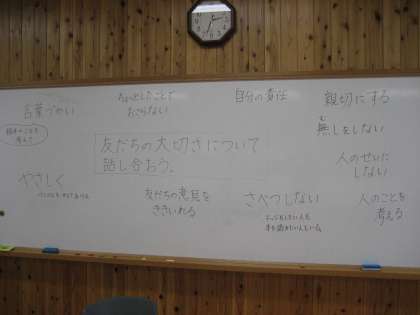 言葉づかい
ちょっとしたことで
おこらない
自分の責任
親切にする
相手のことを
考えて
友だちの大切さについて
話し合おう。
む
無しをしない
人のせいに
しない
やさしく
友だちの意見を
ききいれる
さべつしない
人のことを
考える